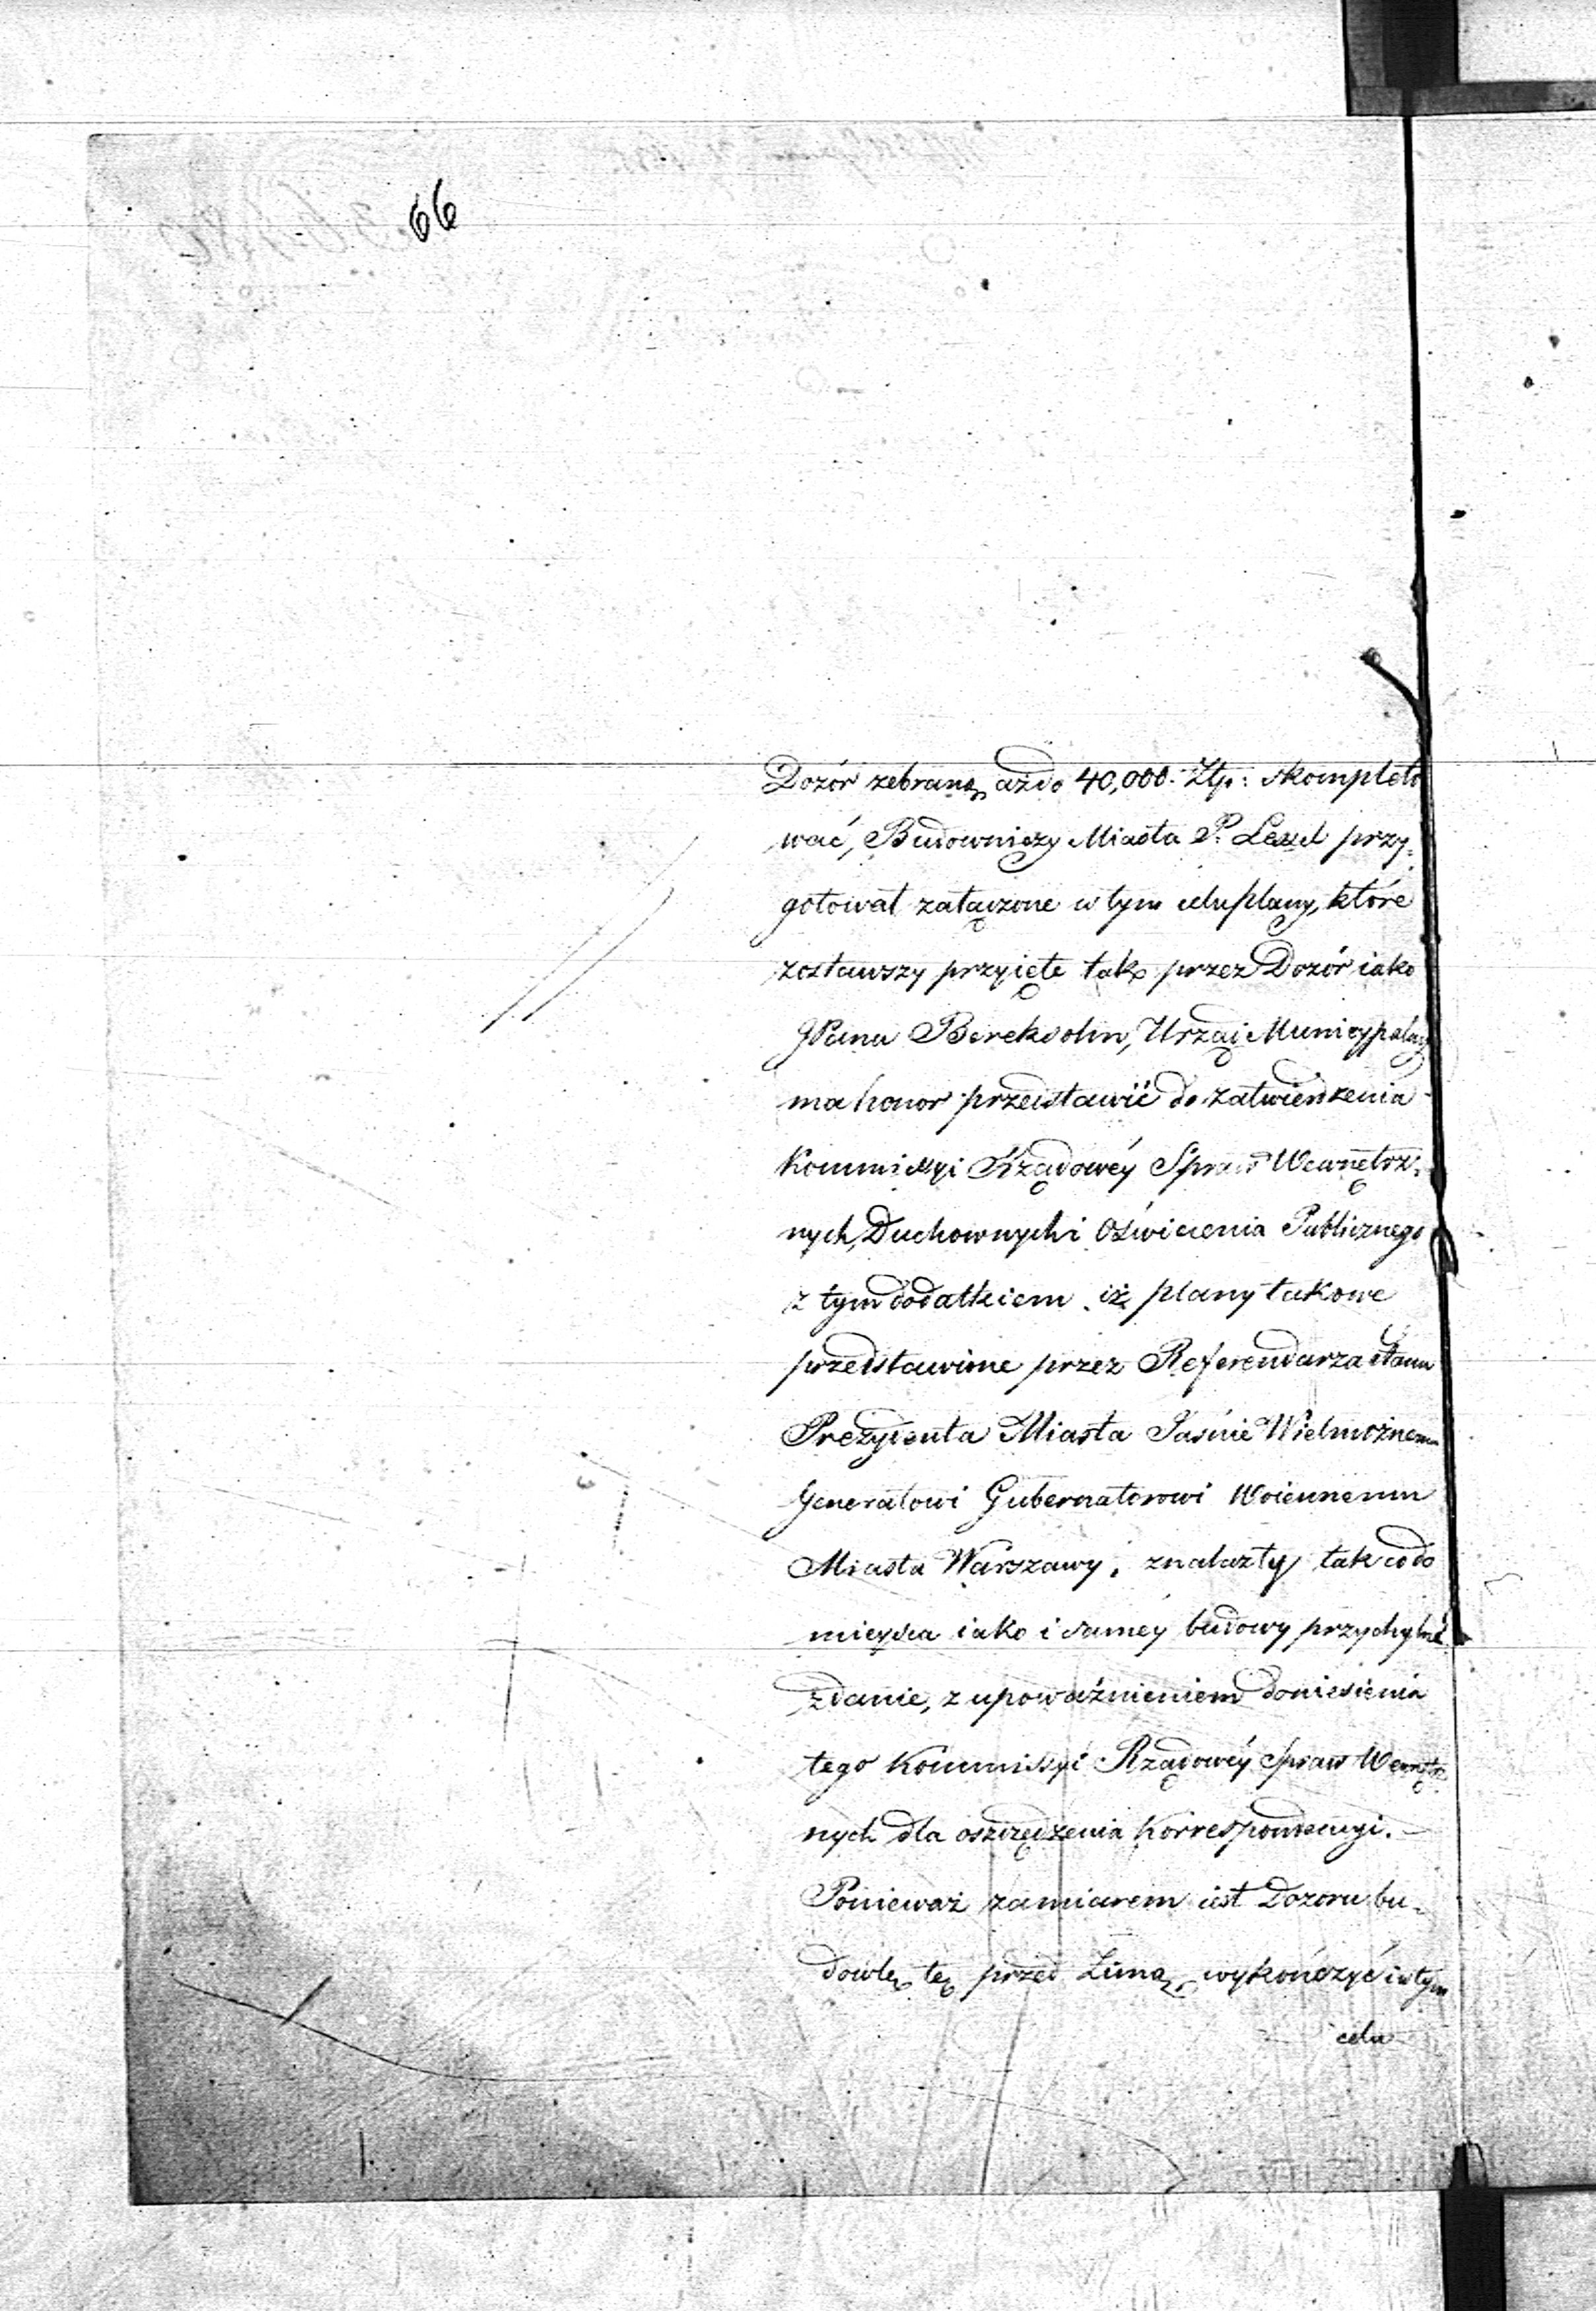 66
Dozór zebraną, aż do 40,000. Złp: skompleto
wać, Budowniczy Miasta P. Lessel przy-
gotował załączone w tym celu plany, które
zostawszy przyięte tak przez Dozór iako
JPana Bereksohn, Urząd Municypalny
ma honor przedstawić do zatwierdzenia
Kommissyi Rządowéy Spraw Wewnętrz-
nych, Duchownych i Oświecenia Publicznego
z tym dodatkiem iż plany takowe
przedstawione przez Referendarza Stanu
Prezydenta Miasta Jaśnie Wielmożnemu
Generałowi Gubernatorowi Woiennemu
Miasta Warszawy, znalazły tak co do
mieysca iako i saméy budowy przychylne
zdanie, z upoważnieniem doniesienia
tego Kommissyi Rządowéy Spraw Wewnętrz
nych dla oszczędzenia Korrespondencyi. —
Ponieważ zamiarem iest Dozoru bu-
dowlę tę przed Zimą, wykończyć i w tym
celu